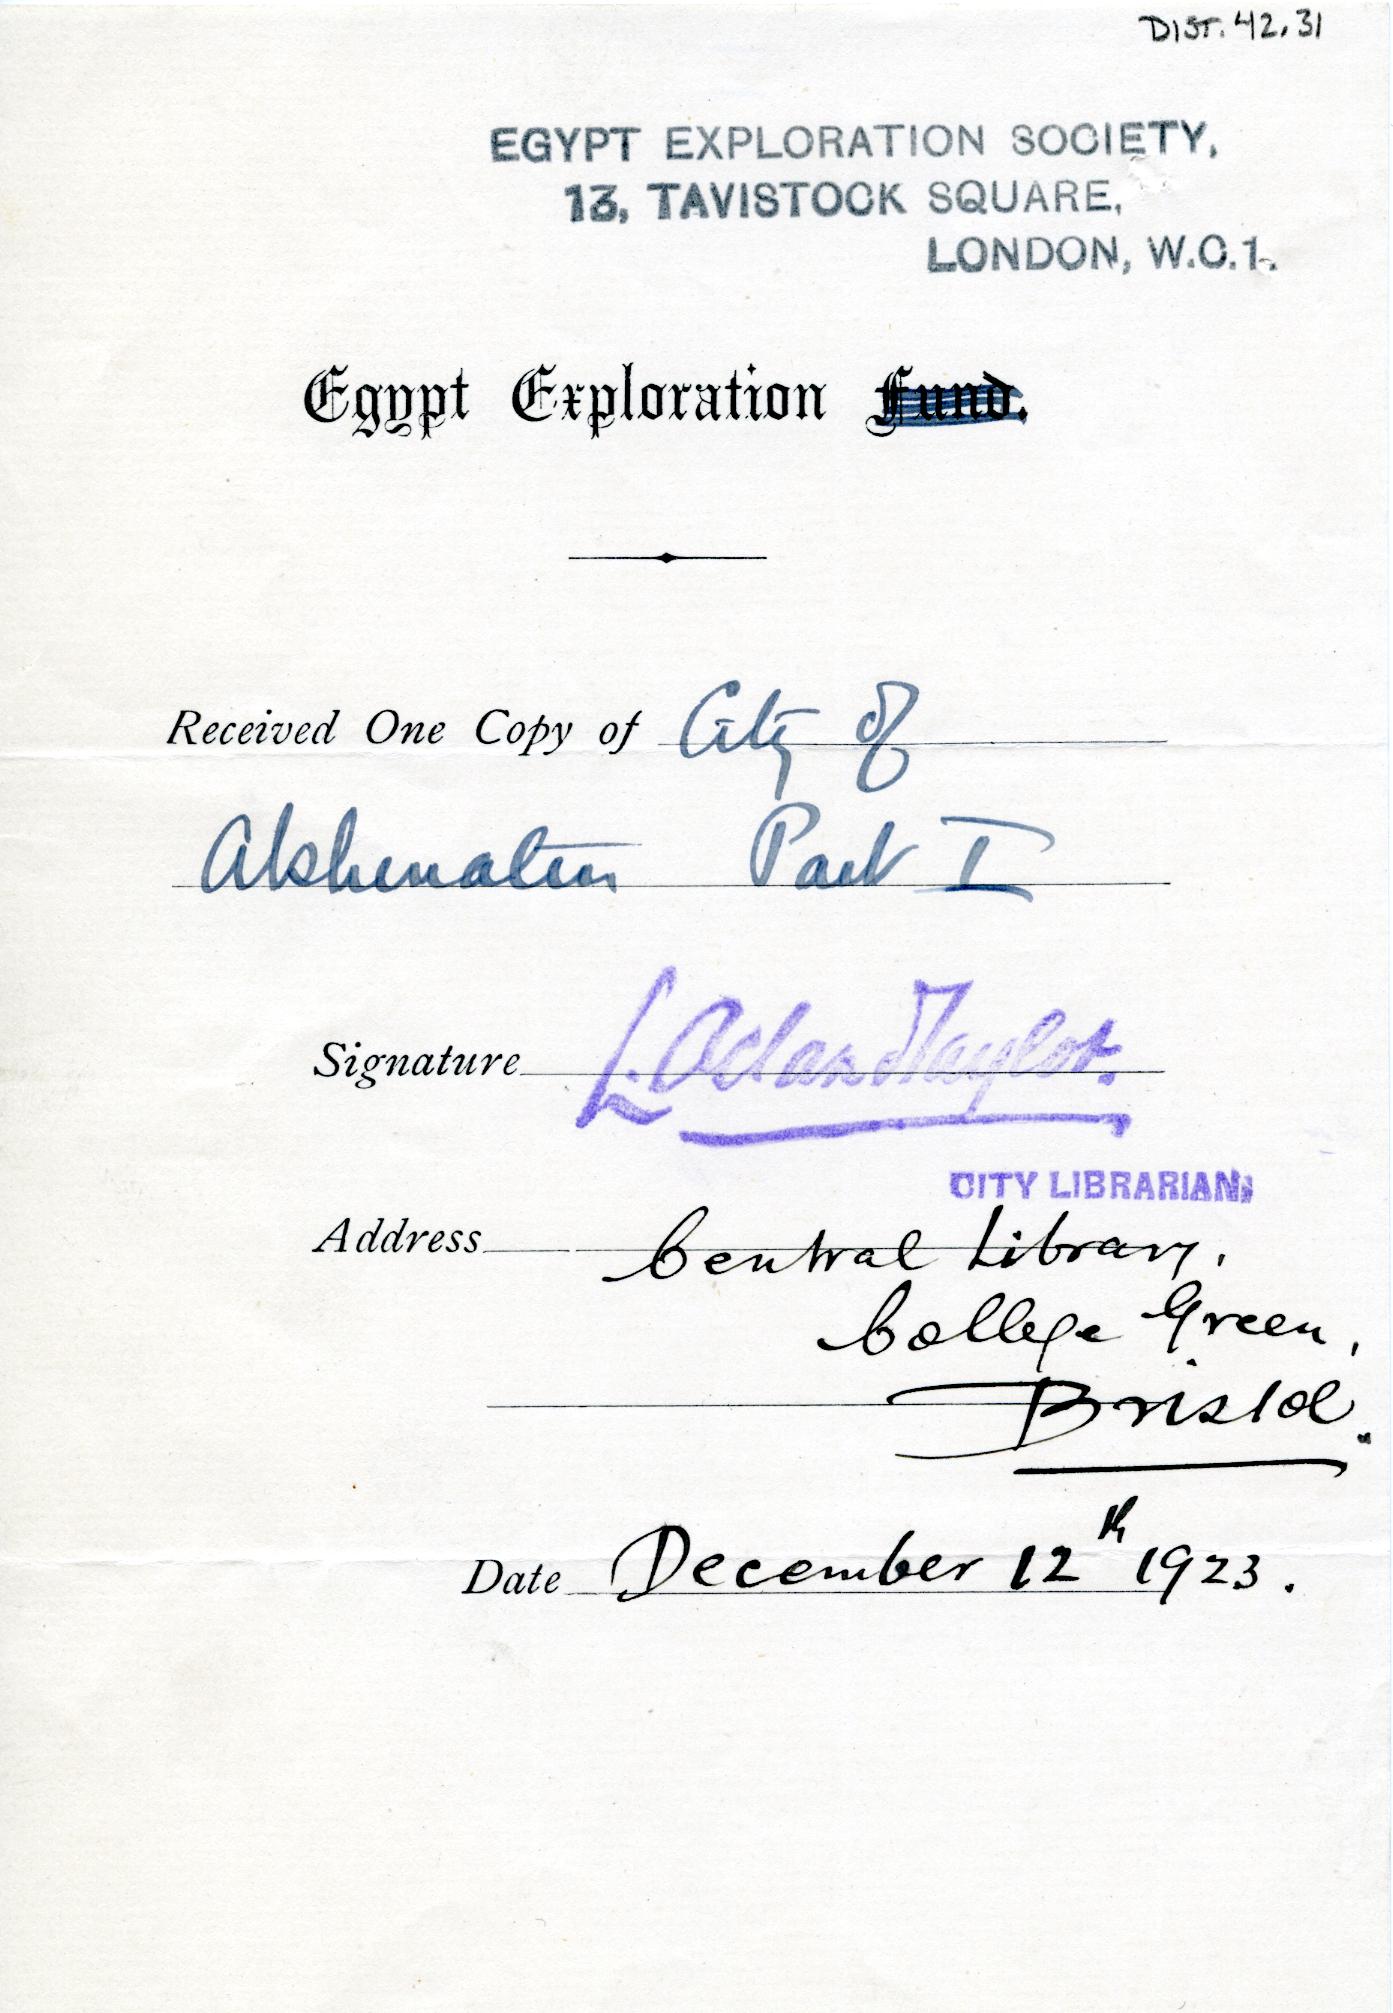 DIST. 42.31
EGYPT EXPLORATION SOCIETY,
13, TAVISTOCK SQUARE,
LONDON, W.C.1.
Egypt Exploration Fund.
Received One Copy of City of
Akhenaten Part I
Signature L. Acland Taylor.
CITY LIBRARIAN,
Address Central Library,
College Green,
Bristol.
Date December 12th 1923.